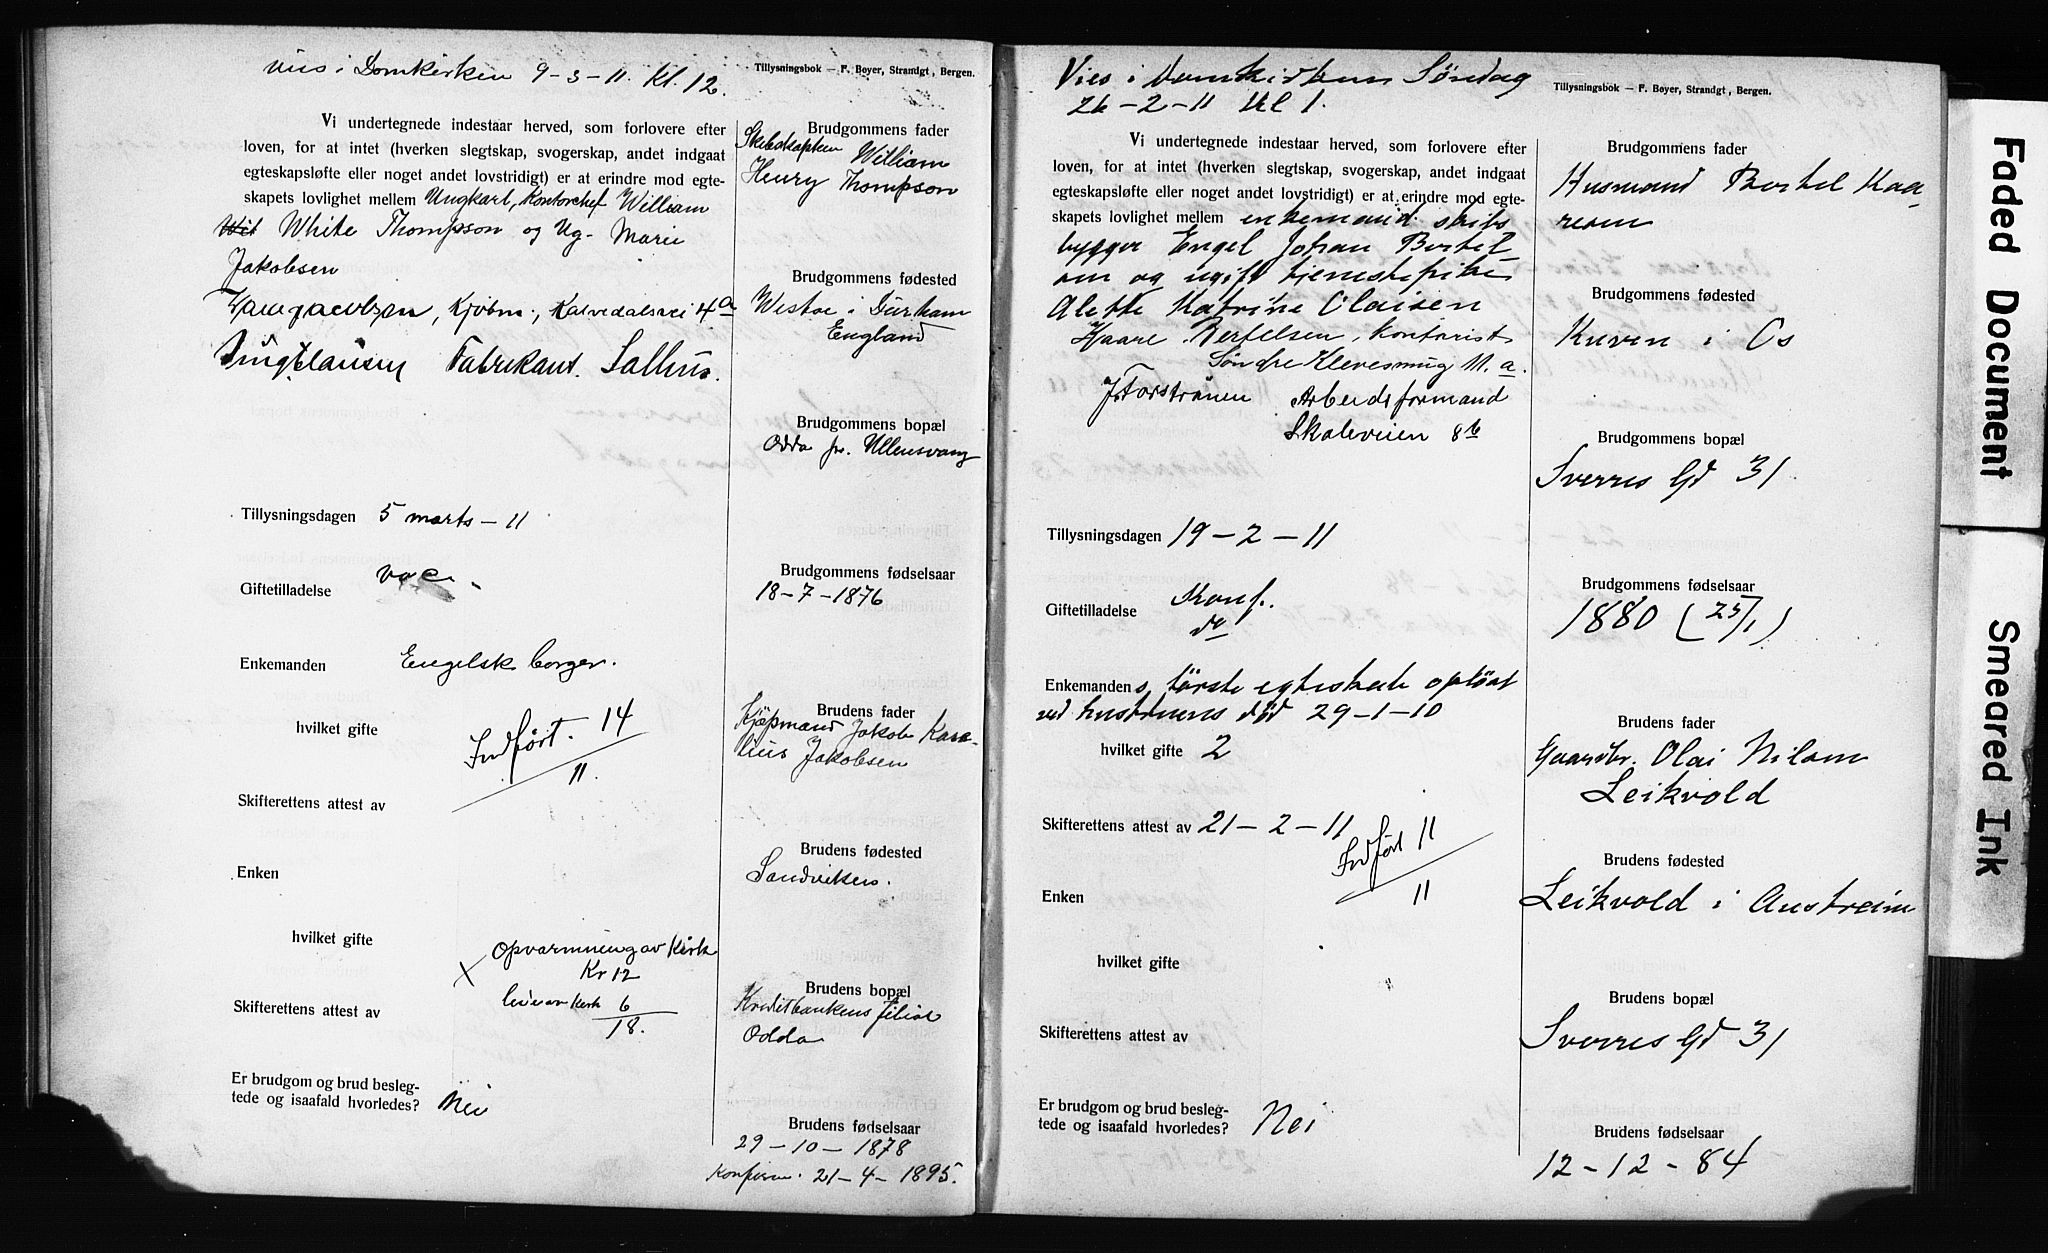 vies i Domkirken 9-3-11. Kl. 12.
Tillysningsbok — F. Beyer, Strandgt, Bergen.
Vi undertegnede indestaar herved, som forlovere efter
loven, for at intet (hverken slegtskap, svogerskap, andet indgaat
egteskapsløfte eller noget andet lovstridigt) er at erindre mod egte-
skapets lovlighet mellem Ungkarl, Kontorchef William
Wil White Thompson og Ug. Marie
Jakobsen
Kjøbm., Kalvedalsvei 4a
Fabrikant. Salhus.
Tillysningsdagen 5 marts - 11
Giftetilladelse vac.
Enkemanden Engelsk borger.
hvilket gifte
Indført. 14
11.
Skifterettens attest av
Enken
hvilket gifte
X opvarmning av Kirk
Kr 12
leie av Kirk 6
18.
Skifterettens attest av
Er brudgom og brud besleg-
tede og isaafald hvorledes? Nei
Brudgommens fader
Skibskaptein William
Henry Thompson
Brudgommens fødested
Westoe i Durham
England
Brudgommens bopæl
Odda pr. Ullensvang
Brudgommens fødselsaar
18-7-1876
Brudens fader
Kjøpmand Jakob Kornelius
Jakobsen
Brudens fødested
Sandviken.
Brudens bopæl
Kreditbankens filial
Odda
Brudens fødselsaar
29-10-1878
Konfirm. 21-4-1895.
Vies i Domkirken Søndag
26-2-11 Kl 1.
Tillysningsbok — F. Beyer, Strandgt, Bergen.
Vi undertegnede indestaar herved, som forlovere efter
loven, for at intet (hverken slegtskap, svogerskap, andet indgaat
egteskapsløfte eller noget andet lovstridigt) er at erindre mod egte-
skapets lovlighet mellem enkemand skibs
bygger Engel Johan Bertel
sen og ugift tjenestepike
Alette Katrine Olaisen
Haare Bertelsen, kontorist
Søndre Klevesmug 11. a.
Arbeidsformand
Skaleveien 8b
Tillysningsdagen 19-2-11
Giftetilladelse Konf.
do
Enkemandens første egteskab opløst
ved hustruens død 29-1-10
hvilket gifte 2
Skifterettens attest av 21-2-11
Indført 11
11
Enken
hvilket gifte
Skifterettens attest av
Er brudgom og brud besleg-
tede og isaafald hvorledes? Nei
Brudgommens fader
Husmand Bertel Haa-
resen
Brudgommens fødested
Kuven i Os
Brudgommens bopæl
Sverres Gd 31
Brudgommens fødselsaar
1880 (25/1)
Brudens fader
Gaardbr. Olai Nilsen
Leikvold
Brudens fødested
Leikvold i Austreim
Brudens bopæl
Sverres Gd 31
Brudens fødselsaar
12-12-84
Faded Document
Smeared Ink